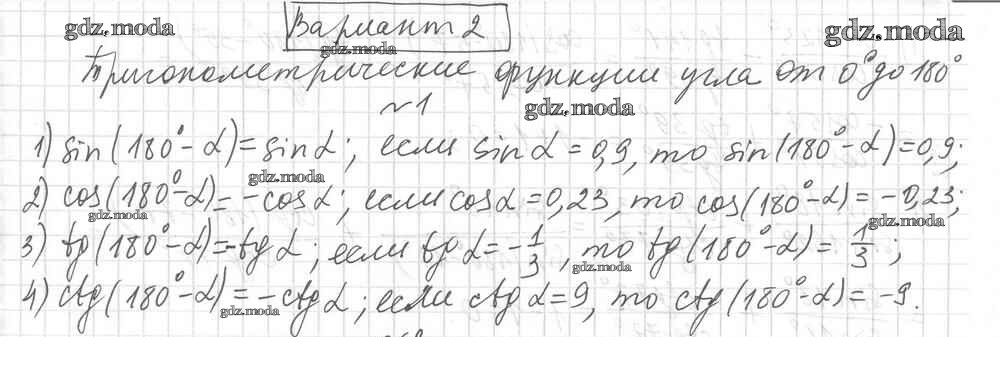 Вариант 2
gdz.moda gdz.moda
gdz.moda
Тригонометрические функции угла от 0° до 180°
№1 gdz.moda
1) sin(180°-α)=sinα; если sinα=0,9, то sin(180°-α)=0,9;
gdz.moda
2) cos(180°-α)=-cosα; если cosα=0,23, то cos(180°-α)=-0,23;
gdz.moda gdz.moda
3) tg(180°-α)=-tgα; если tgα=-1/3, то tg(180°-α)=1/3;
gdz.moda
4) ctg(180°-α)=-ctgα; если ctgα=9, то ctg(180°-α)=-9.
gdz.moda